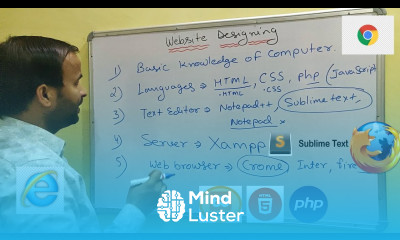 Website Designing
1) Basic knowledge of Computer.
2) Languages → HTML, CSS, php (JavaScript
.HTML .CSS
3) Text Editor → Notepad++, Sublime text,
Notepad
4) Server → Xampp S Sublime Text
5) Web browser → Crome, Inter, fire
Mind
Luster
HTML
5
php